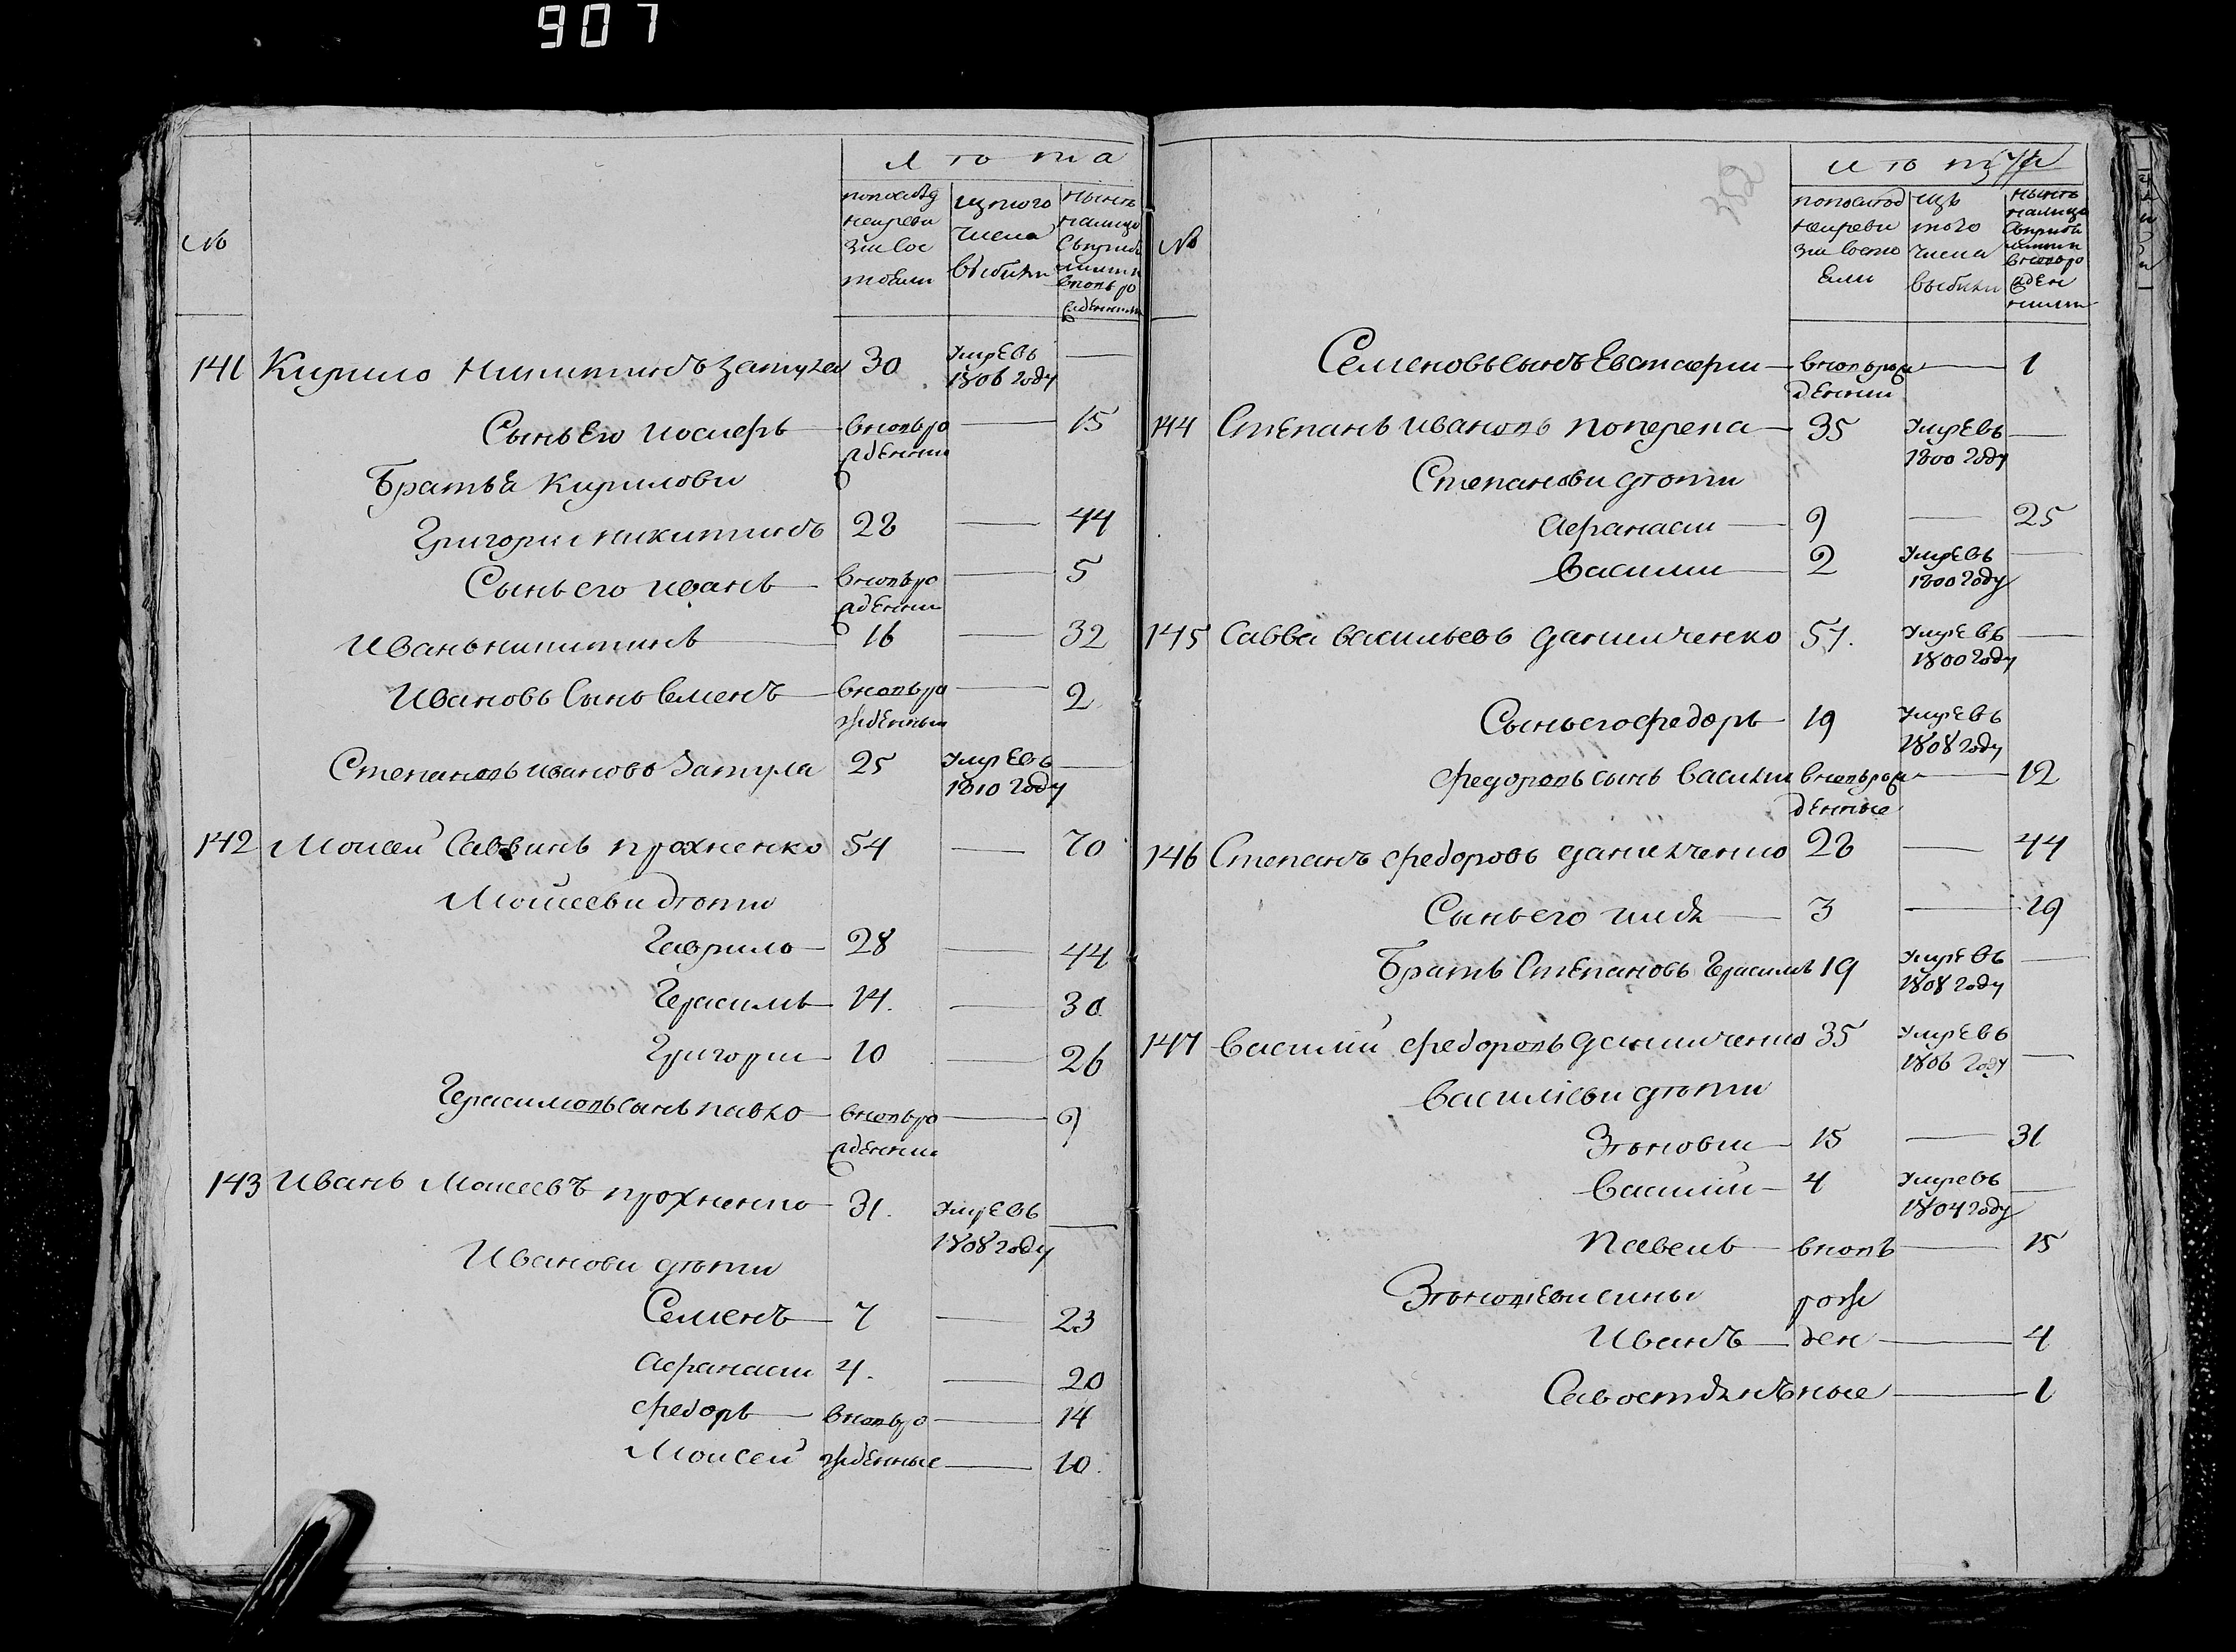 907
лѣта
№
попослѣд
ней реви
зии сос
тояли
изтого
числа
выбыли
нынѣ
налицо
Съприбы
лыми и
вновь ро
жденными
141 Кирило Никитинъ Затула 30 умре въ —
1806 году
Сынъ Его Иосифъ — вновь ро — 15
жденни
Братья Кириловы
Григорий Никитинъ 28 — 44
Сынъ его Иванъ — вновь ро — 5
жденни
Иванъ Никитинъ — 16 — 32
Ивановъ Сынъ Семенъ — вновь ро — 2
жденныи
Степановъ Ивановъ Затула 25 умре въ —
1810 году
142 Моисей Саввинъ Прохненко 54 — 70
Моисееви дѣти
Гаврило — 28 — 44
Герасимъ — 14. — 30
Григории — 10 — 26
Герасимовъ сынъ Павло — вновь ро — 9
жденни
143 Иванъ Моисеевъ Прохненко — 31. умре въ —
1808 году
Иванови дѣти
Семенъ — 7 — 23
Афанасии 4. — 20
Федоръ — вновь ро — 14
Моисей жденные — 10.
352
лѣта
№
попослѣд
ней реви
зии состо
яли
изъ
того
числа
выбыли
нынѣ
налицо
Съприбы
лыми и
вновь ро
жден
ными
Семеновъ сынъ Евстафии — вновь рож — 1
денни
144 Степанъ Ивановъ Поперека — 35 умре въ —
1800 году
Степанови дѣти
Афанасии — 9 — 25
Василии — 2 умре въ —
1800 году
145 Савва Васильевъ Данилченко 57. умре въ —
1800 году
Сынъ его Федоръ — 19 умре въ
1808 году
Федоровъ сынъ Василии вновь рож — 12
денные
146 Степанъ Федоровъ Данилченко 28 — 44
Сынъ его Илья — 3 — 19
Братъ Степановъ Герасимъ 19 умре въ —
1808 году
147 Василий Федоровъ Данилченко 35 умре въ
1806 году —
Василіеви дѣти
Зѣновии — 15 — 31
Василий — 4 умре въ —
1804 году
Павелъ — вновь — 15
Зѣновіеви сины рож
Иванъ — ден — 4
Савостьянъ ные — 1